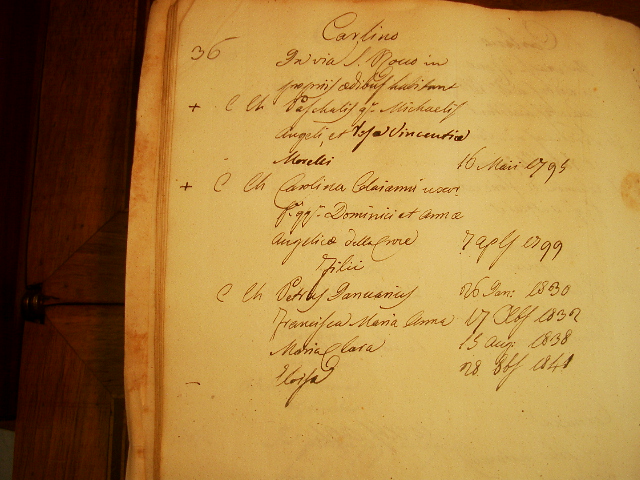 Carlino
36
In via S. Rocco in
propriis ædibus habitant
+ C Ch Paschalis qm Michaelis
Angeli, et Vincentiæ
Morelli 16 Maii 1795
+ C Ch Carolina Colaianni uxor
Dominici et Annæ
Angelicæ della Croce 7 1799
Filii
C Ch Petrus Januarius 26 Jan: 1830
Francisca Maria Anna 17 Xbs 1832
Maria Clara 15 Aug: 1838
28 8bs 1841